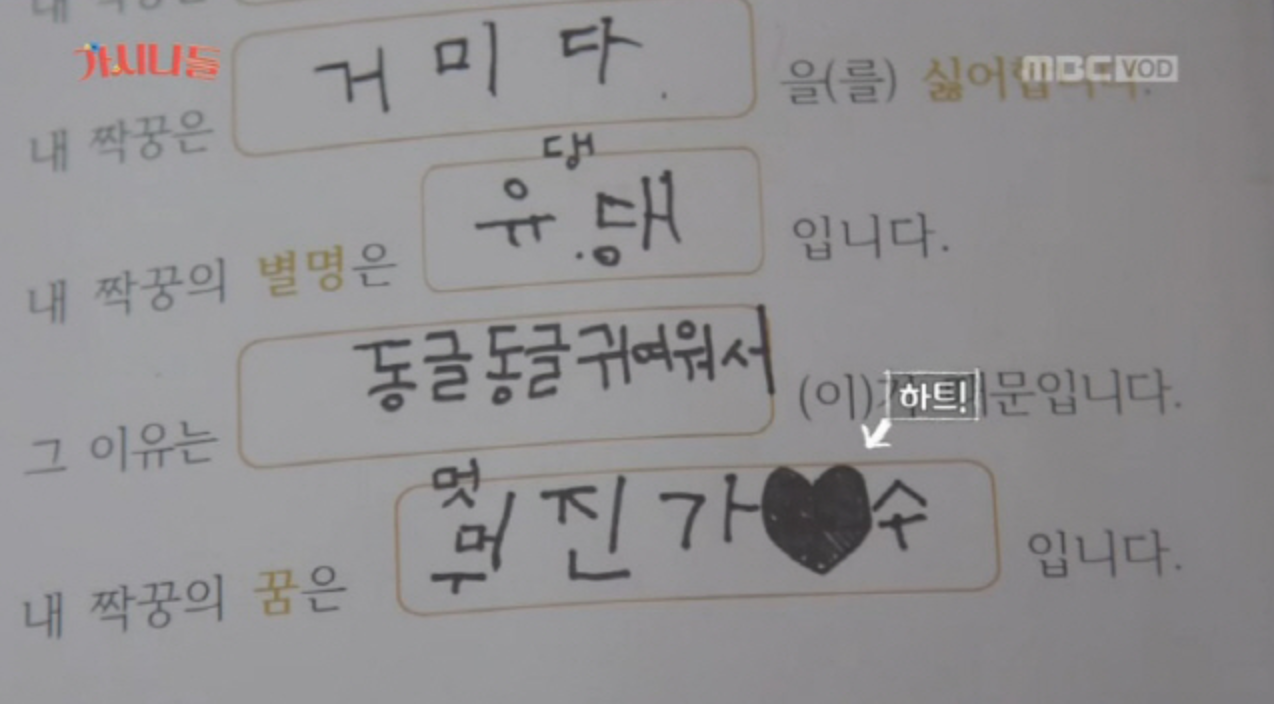 가시나들
MBC VOD
내 짝꿍은 거미다. 을(를) 싫어합니다.
댕
내 짝꿍의 별명은 유댕 입니다.
그 이유는 동글동글귀여워서 (이)기 때문입니다.
하트!
멋
내 짝꿍의 꿈은 뭐진가♥수 입니다.